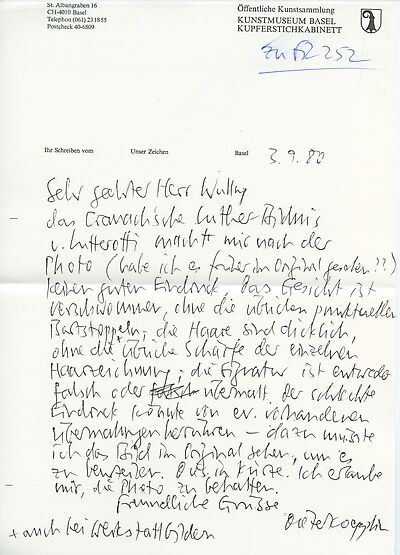 St. Albangraben 16
CH-4010 Basel
Telephon (061) 23 18 55
Postcheck 40-6809
Öffentliche Kunstsammlung
KUNSTMUSEUM BASEL
KUPFERSTICHKABINETT
zu FR 252
Ihr Schreiben vom Unser Zeichen Basel 3.9.80
Sehr geehrter Herr
das Cranachsche Luther-Bildnis
v. Lutterotti macht mir nach der
Photo (habe ich es früher im Original gesehen??)
keinen guten Eindruck. Das Gesicht ist
verschwommen, ohne die üblichen punktuellen
Bartstoppeln+, die Haare sind dicklich,
ohne die übliche Schärfe der einzelnen
Haarzeichnung; die Signatur ist entweder
falsch oder übermalt. Der schlechte
Eindruck könnte von ev. vorhandenen
Übermalungen herrühren – dazu müsste
ich das Bild im Original sehen, um es
zu beurteilen. Dies in Kürze. Ich erlaube
mir, die Photo zu behalten.
Freundliche Grüsse
Dieter Koepplin
+ auch bei Werkstattbildern